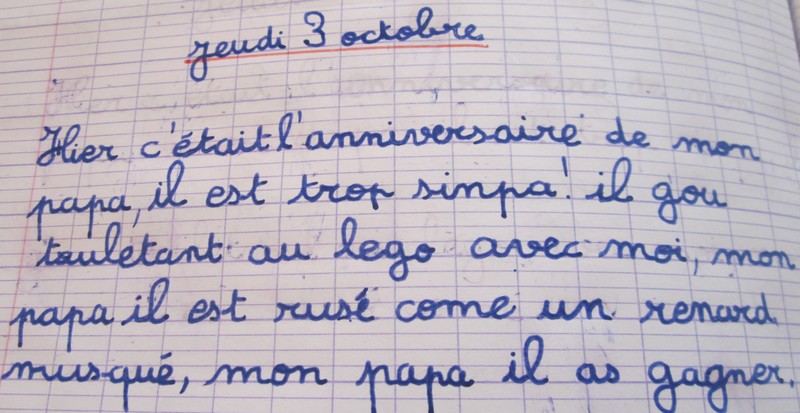 jeudi 3 octobre
Hier c'était l'anniversaire de mon
papa, il est trop sinpa! il gou
touletant au lego avec moi, mon
papa il est rusé come un renard
musqué, mon papa il as gagner.